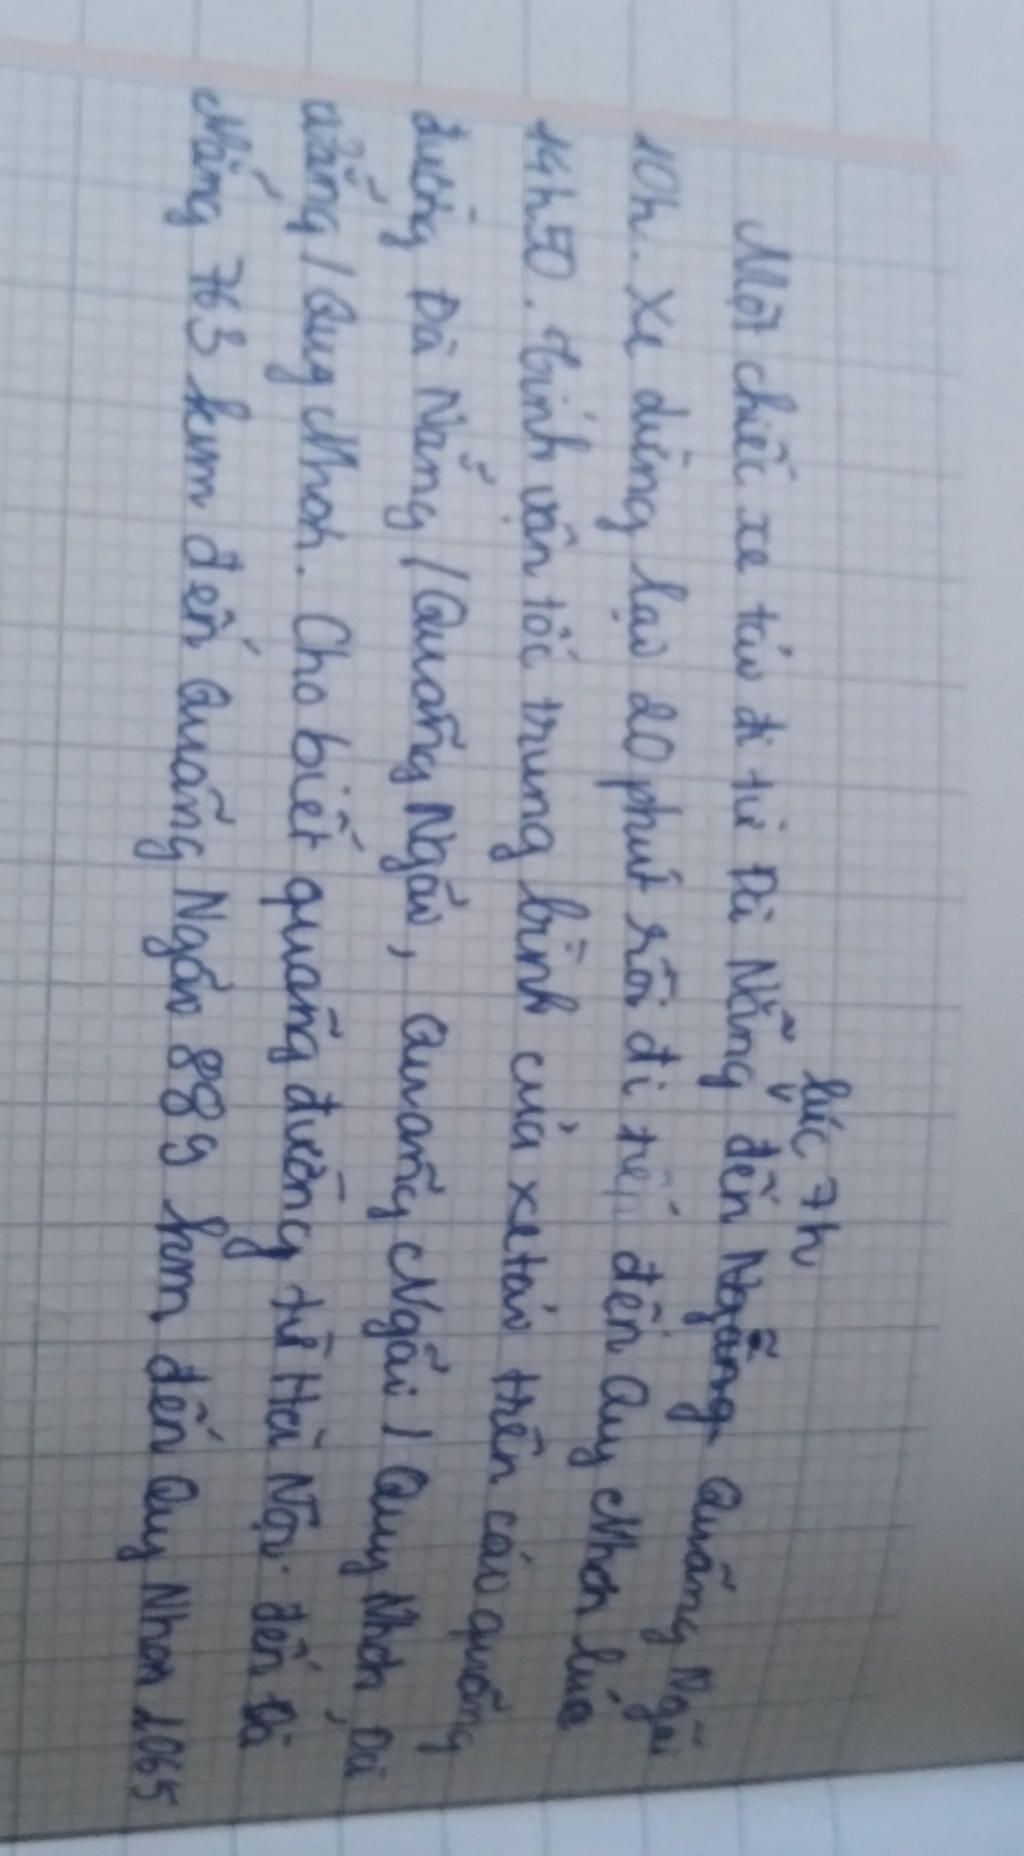 lúc 7h
Một chiếc xe tải đi từ Đà Nẵng đến Quãng Ngãi
10h. Xe dừng lại 20 phút rồi đi tiếp đến Quy Nhơn lúc
14h50. Tính vận tốc trung bình của xe tải trên các quãng
đường Đà Nẵng / Quãng Ngãi, Quãng Ngãi / Quy Nhơn, Đà
Nẵng / Quy Nhơn. Cho biết quãng đường từ Hà Nội đến Đà
Nẵng 763 km đến Quãng Ngãi 889 km, đến Quy Nhơn 1065